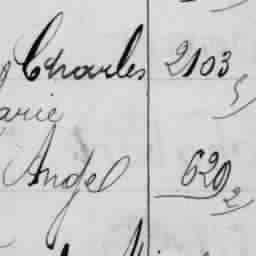 Charles 2103
arie
Angel 620